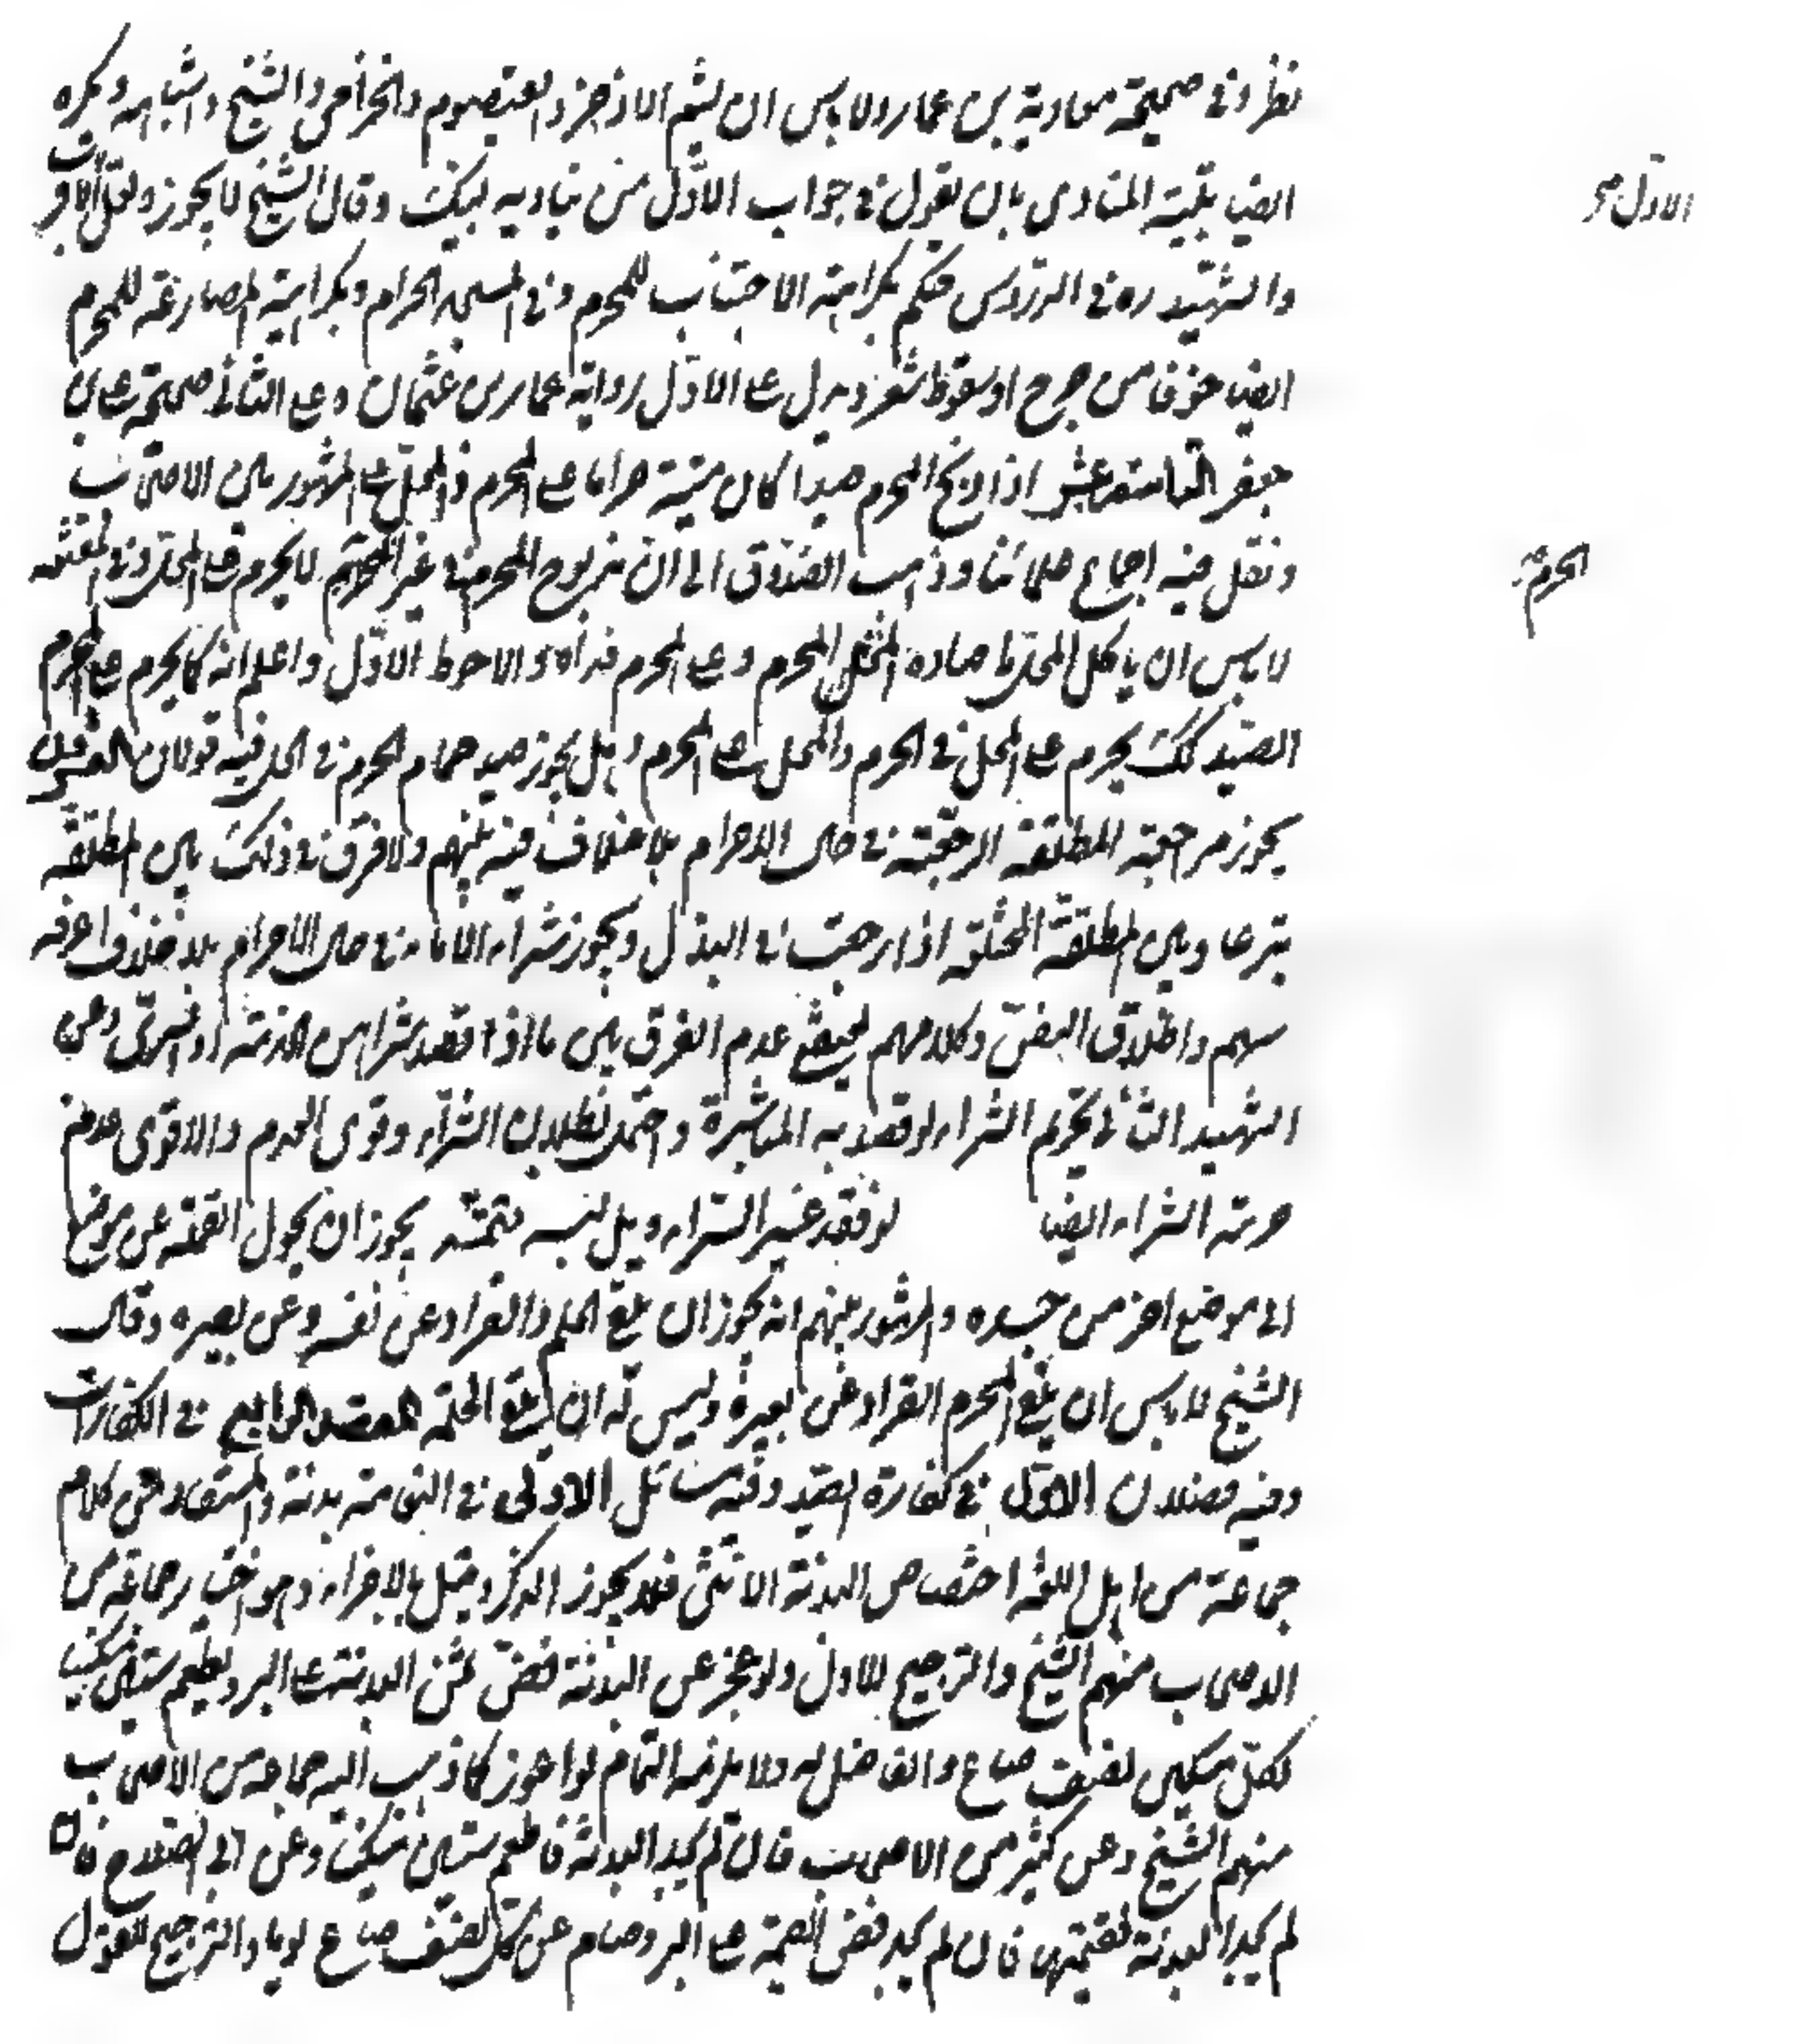 نظر وفى صحيحة معاوية بن عمار ولا باس ان يشم الاذخر والقيصوم والخزامى والشيح واشباهه ويكره
ايضا تلبية المنادى بان يقول فى جواب الاول من يناديه لبيك وقال الشيخ لا يجوز ولعل الاقرب
الاول
والشهيد ره فى الدروس حكم بكراهة الاحتباء للمحرم وفى المسجد الحرام وبكراهية المصارعة للمحرم
ايضا خوفا من جرح او سقوط شعر ويدل على الاول رواية حماد بن عثمان وعلى الثانى صحيحة على بن
جعفر التاسعة عشر اذا ذبح المحرم صيدا كان ميتة حراما على المحرم والمحل على المشهور بين الاصحاب
ونقل فيه اجماع علمائنا وذهب الصدوق الى ان مذبوح المحرم فى غير الحرم لا يحرم على المحل وفى المقنعة
الحرم
لا باس ان ياكل المحل ما صاده المحرم وعلى المحرم فداه والاحوط الاول واعلم انه كما يحرم على المحرم
الصيد كك يحرم على المحل فى الحرم والمحل على المحرم وهل يجوز صيد حمام الحرم فى الحل فيه قولان العشرون
يجوز مراجعة المطلقة الرجعية فى حال الاحرام بلا خلاف فيه بينهم ولا فرق فى ذلك بين المطلقة
تبرعا وبين المطلقة المختلعة اذا رجعت فى البذل ويجوز شراء الاماء فى حال الاحرام بلا خلاف اعرفه
بينهم واطلاق النص وكلامهم يقتضى عدم الفرق بين ما اذا قصد بشرائهن الخدمة او التسرى وعن
الشهيد الثانى تحريم الشراء لو قصد به المباشرة واحتمل بطلان الشراء وقوى العدم والاقوى عدم
حرمة الشراء ايضا لو قصد عند الشراء وهل لمسه تتمة يجوز ان يحول القملة عن موضع
الى موضع اخر من جسده والمشهور بينهم انه يجوز ان يلقى الحلم والقراد عن نفسه وعن بعيره وقال
الشيخ لا باس ان يلقى المحرم القراد عن بعيره وليس له ان يلقى الحلمة المقصد الرابع فى الكفارات
وفيه فصلان الاول فى كفارة الصيد وفيه مسائل الاولى فى النعامة بدنة والمستفاد من كلام
جماعة من اهل اللغة اختصاص البدنة الانثى فلا يجوز الذكر وقيل بالاجزاء وهو اختيار جماعة من
الاصحاب منهم الشيخ والترجيح للاول ولو عجز عن البدنة فض ثمن البدنة على البر ويطعم ستين مسكينا
لكل مسكين نصف صاع والفاضل له ولا يلزمه التمام لو اعوز كما ذهب اليه جماعة من الاصحاب
منهم الشيخ وعن كثير من الاصحاب فان لم يجد البدنة فاطعم ستين مسكينا وعن ابى الصلاح فان
لم يجد البدنة فقيمتها فان لم يجد فض القيمة على البر وصام عن كل نصف صاع يوما والترجيح للقول